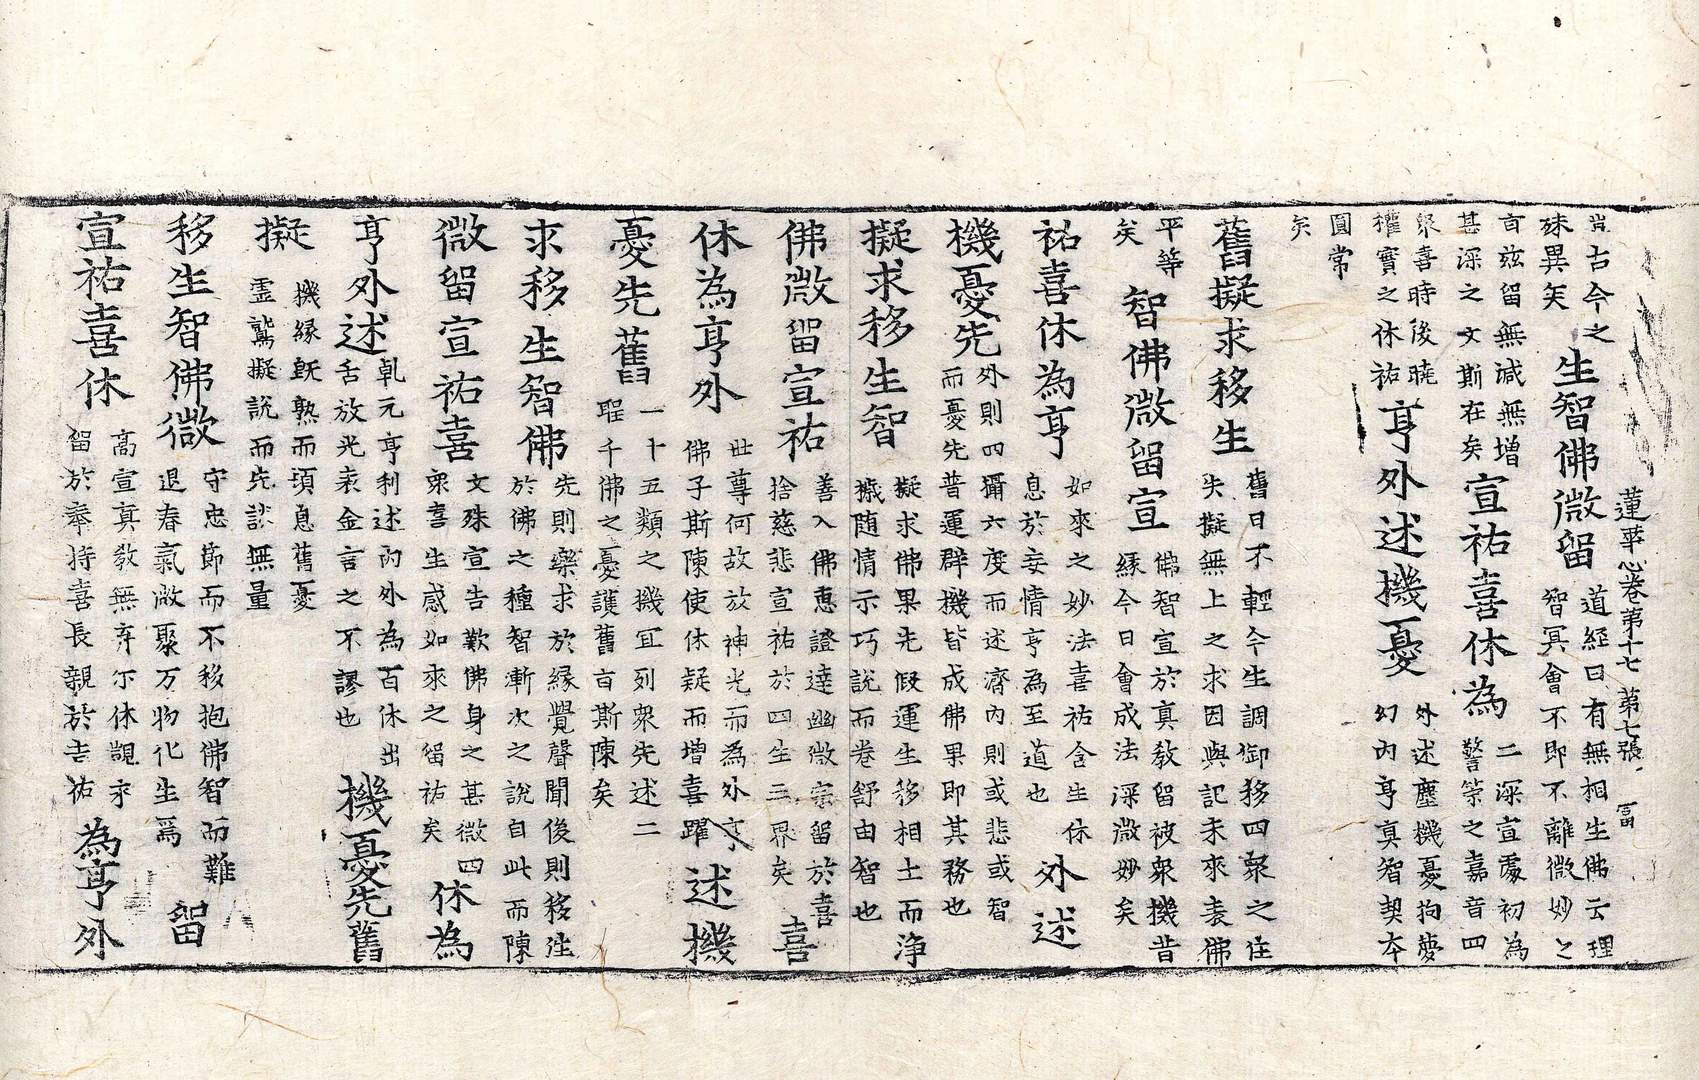 蓮華心卷第十七 第七張 冨
豈古今之
殊異矣
生智佛微留
道經曰有無相生佛云理
智冥會不即不離微妙之
亘玆留無减無增
甚深之文斯在矣
宣祐喜休為
二深宣處初為
警策之嘉音四
衆喜時後曉
權實之休祐
亨外述機憂
外述塵機憂拘夢
幻內亨真智契本
圓常
矣
舊擬求移生
舊日不輕今生調御移四衆之住
失擬無上之求因與記未來表佛
平等
矣
智佛微留宣
佛智宣於真教留被衆機昔
緣今日會成法深微妙矣
祐喜休為亨
如來之妙法喜祐含生休
息於妄情亨為至道也
外述
機憂先
外則四攝六度而述濟內則或悲或智
而憂先普運群機皆成佛果即其務也
擬求移生智
擬求佛果先假運生移相土而淨
穢随情示巧說而卷舒由智也
佛微留宣祐
善入佛惠證達幽微宗留於喜
捨慈悲宣祐於四生三界矣
喜
休為亨外
世尊何故放神光而為外亨
佛子斯陳使休疑而增喜躍
述機
憂先舊
一十五類之機冝列衆先述二
聖千佛之憂護舊亘斯陳矣
求移生智佛
先則藥求於緣覺聲聞後則移注
於佛之種智漸次之說自此而陳
微留宣祐喜
文殊宣告歎佛身之甚微四
衆喜生感如來之留祐矣
休為
亨外述
乹元亨利述內外為百休出
舌放光表金言之不謬也
機憂先舊
擬
機緣既熟而頃息舊憂
霊鷲擬說而先談無量
移生智佛微
守忠節而不移抱佛智而難
退春氣微聚万物化生焉
留
宣祐喜休
高宣真教無亨尓休覩求
留於奉持喜長親於吉祐
為亨外